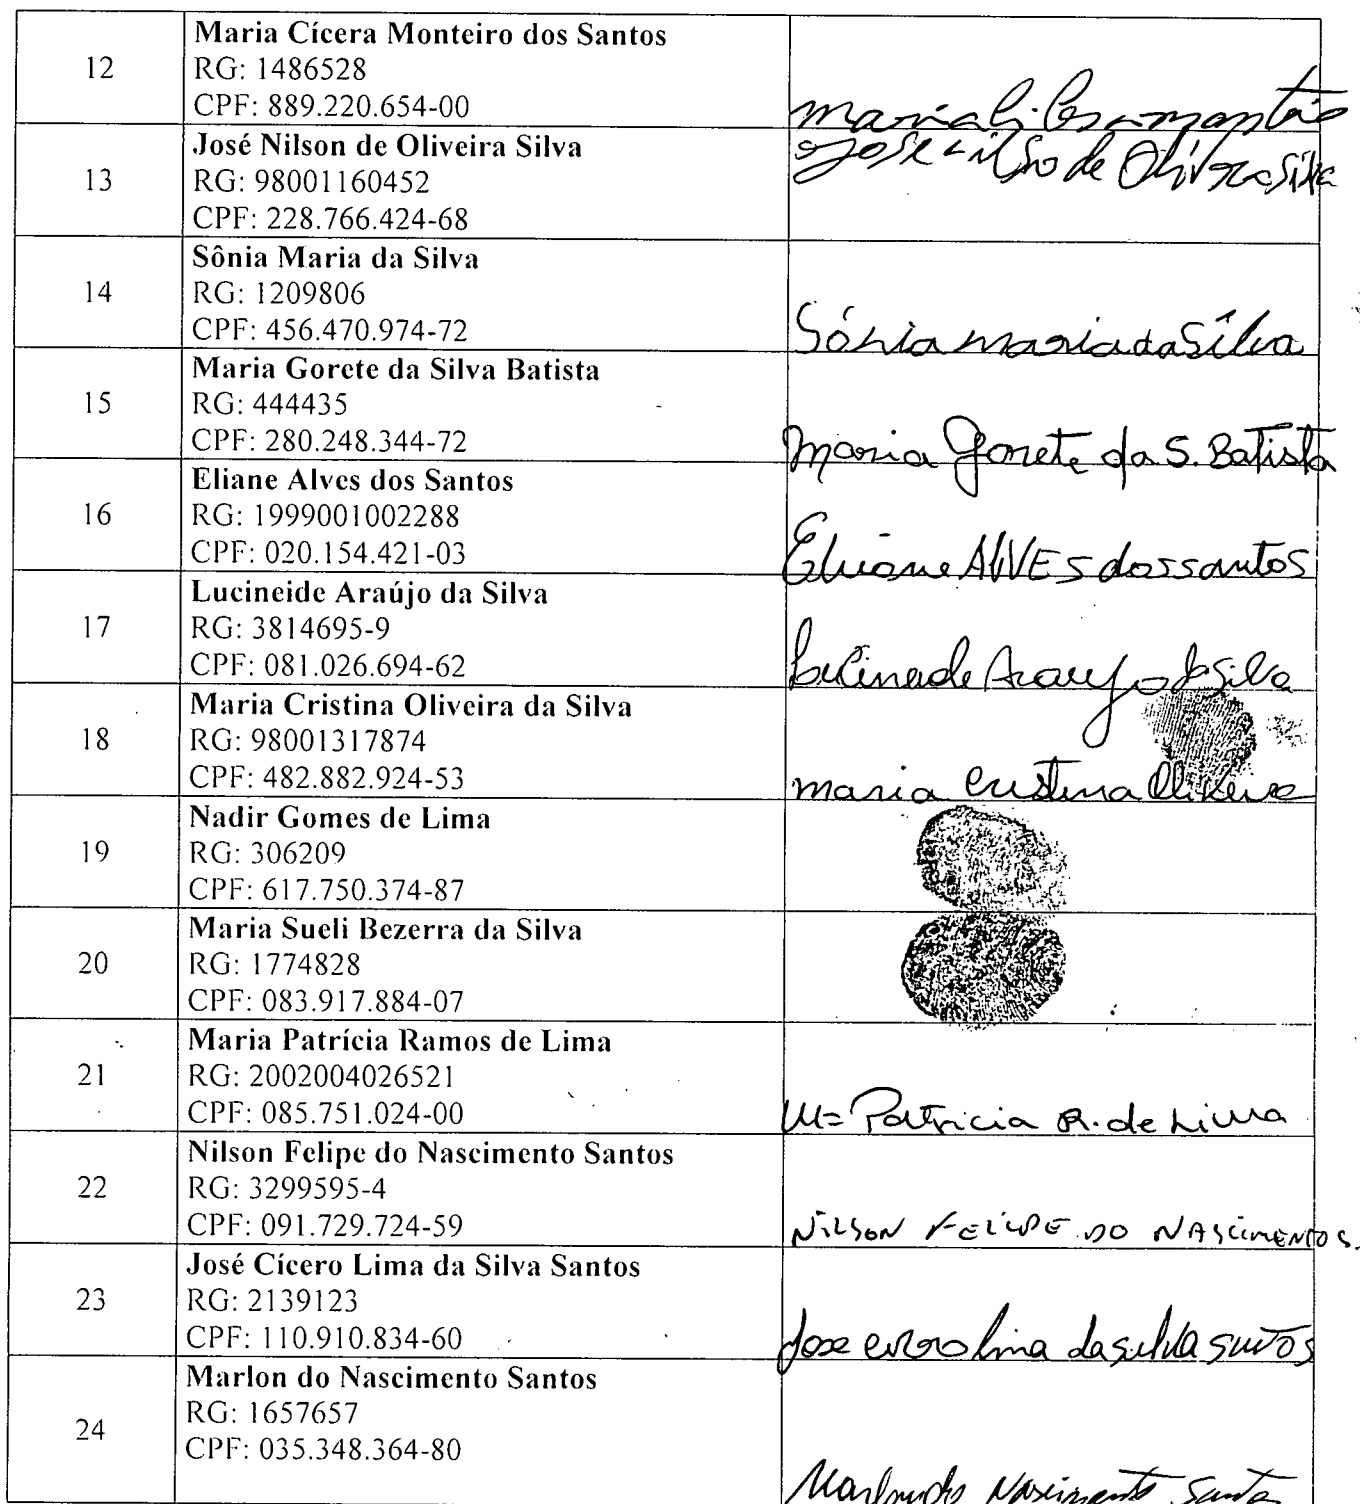 12
Maria Cícera Monteiro dos Santos
RG: 1486528
CPF: 889.220.654-00
13
José Nilson de Oliveira Silva
RG: 98001160452
CPF: 228.766.424-68
de Oliveira Silva
14
Sônia Maria da Silva
RG: 1209806
CPF: 456.470.974-72
Sónia maria da Silva
15
Maria Gorete da Silva Batista
RG: 444435
CPF: 280.248.344-72
Maria Gorete da S. Batista
16
Eliane Alves dos Santos
RG: 1999001002288
CPF: 020.154.421-03
Eliane ALVES dos santos
17
Lucineide Araújo da Silva
RG: 3814695-9
CPF: 081.026.694-62
Araujo da Silva
18
Maria Cristina Oliveira da Silva
RG: 98001317874
CPF: 482.882.924-53
maria cristina Oliveira
19
Nadir Gomes de Lima
RG: 306209
CPF: 617.750.374-87
20
Maria Sueli Bezerra da Silva
RG: 1774828
CPF: 083.917.884-07
21
Maria Patrícia Ramos de Lima
RG: 2002004026521
CPF: 085.751.024-00
Mª Patricia R. de Lima
22
Nilson Felipe do Nascimento Santos
RG: 3299595-4
CPF: 091.729.724-59
NILSON FELIPE DO NASCIMENTO S.
23
José Cícero Lima da Silva Santos
RG: 2139123
CPF: 110.910.834-60
Jose lima da silva
24
Marlon do Nascimento Santos
RG: 1657657
CPF: 035.348.364-80
Marlon do Nascimento Santos